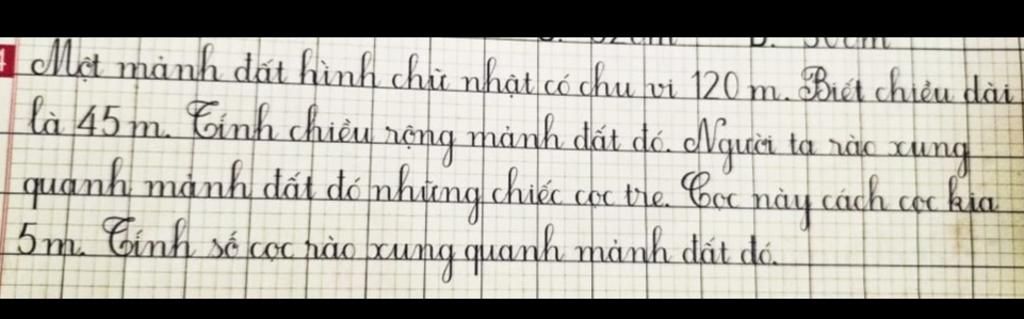 Một mảnh đất hình chữ nhật có chu vi 120 m. Biết chiều dài
là 45 m. Tính chiều rộng mảnh đất đó. Người ta rào xung
quanh mảnh đất đó những chiếc cọc tre. Cọc này cách cọc kia
5m. Tính số cọc rào xung quanh mảnh đất đó.